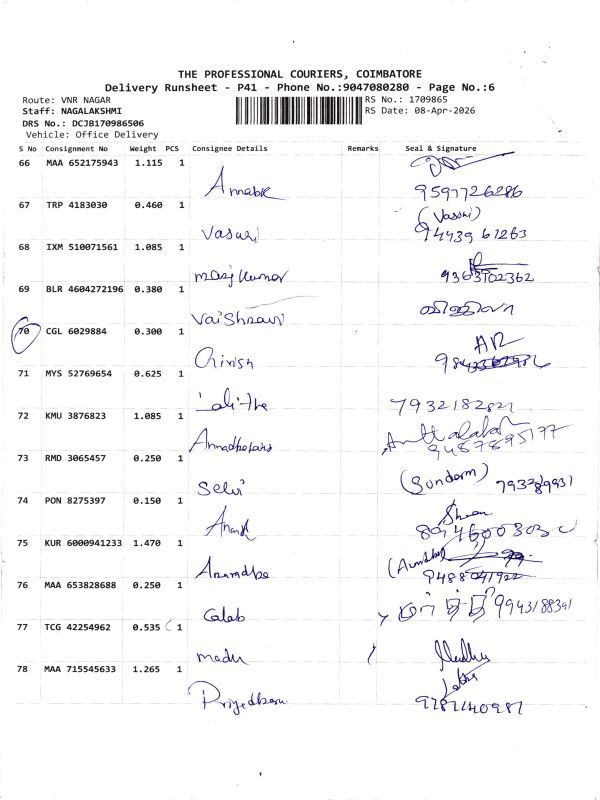 THE PROFESSIONAL COURIERS, COIMBATORE
Delivery Runsheet - P41 - Phone No.:9047080280 - Page No.:6
Route: VNR NAGAR
RS No.: 1709865
Staff: NAGALAKSHMI
RS Date: 08-Apr-2026
DRS No.: DCJB170986506
Vehicle: Office Delivery
S No Consignment No Weight PCS Consignee Details Remarks Seal & Signature
66 MAA 652175943 1.115 1
9597726286
67 TRP 4183030 0.460 1
(Vasuki)
Vasuki 94439 61263
68 IXM 510071561 1.085 1
Manjkumar 9363702362
69 BLR 4604272196 0.380 1
Vaishnavi
70 CGL 6029884 0.300 1
71 MYS 52769654 0.625 1
Lalitha 7932182821
72 KMU 3876823 1.085 1
9487895177
73 RMD 3065457 0.250 1
(Sundarm)
Selvi
74 PON 8275397 0.150 1
Anand
75 KUR 6000941233 1.470 1
76 MAA 653828688 0.250 1
Calab 9943188391
77 TCG 42254962 0.535 1
madhu Madhu
78 MAA 715545633 1.265 1
9787140987